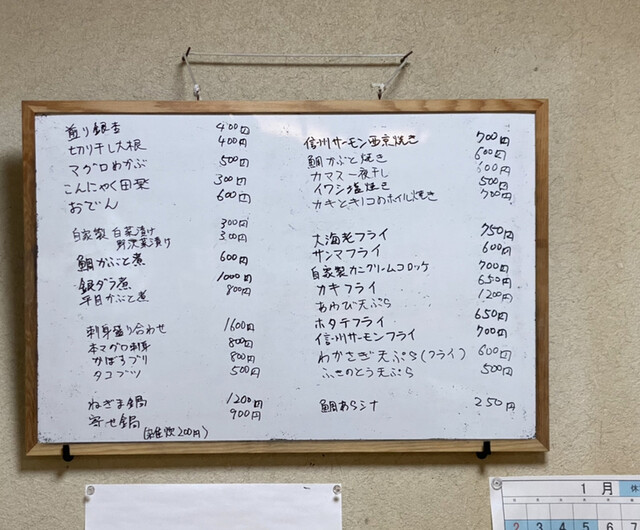 煎り銀杏 400円
切り干し大根 400円
マグロめかぶ 500円
こんにゃく田楽 300円
おでん 600円
自家製 白菜漬け 300円
野沢菜漬け 300円
鯛かぶと煮 600円
銀ダラ煮 1000円
平目かぶと煮 800円
刺身盛り合わせ 1600円
本マグロ刺身 800円
かぼろブリ 800円
タコブツ 500円
ねぎま鍋 1200円
寄せ鍋 900円
(雑炊200円)
信州サーモン西京焼き 700円
鯛かぶと焼き 600円
カマス一夜干し 600円
イワシ塩焼き 500円
カキとキノコのホイル焼き 700円
大海老フライ 750円
サンマフライ 600円
自家製カニクリームコロッケ 700円
カキフライ 650円
あわび天ぷら 1200円
ホタテフライ 650円
信州サーモンフライ 700円
わかさぎ天ぷら(フライ) 600円
ふきのとう天ぷら 500円
鯛あら汁 250円
1月 休
2 3 4 5 6 7